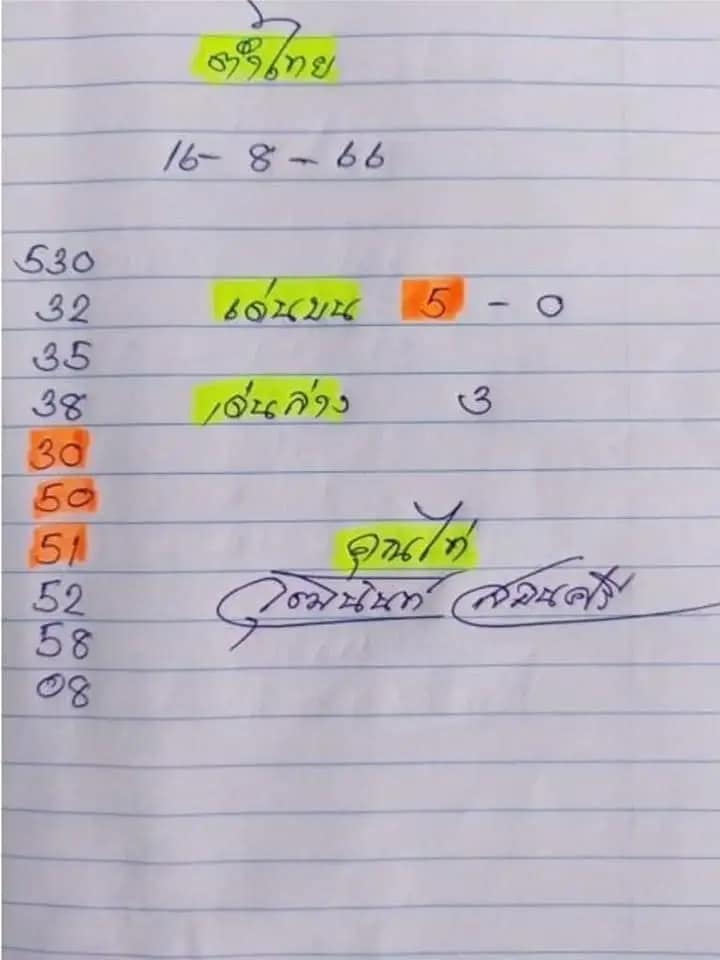 ต้ำไทย
16 - 8 - 66
530
32 เด่นบน 5 - 0
35
38 เด่นล่าง 3
30
50
51 คุณไก่
52
58
08